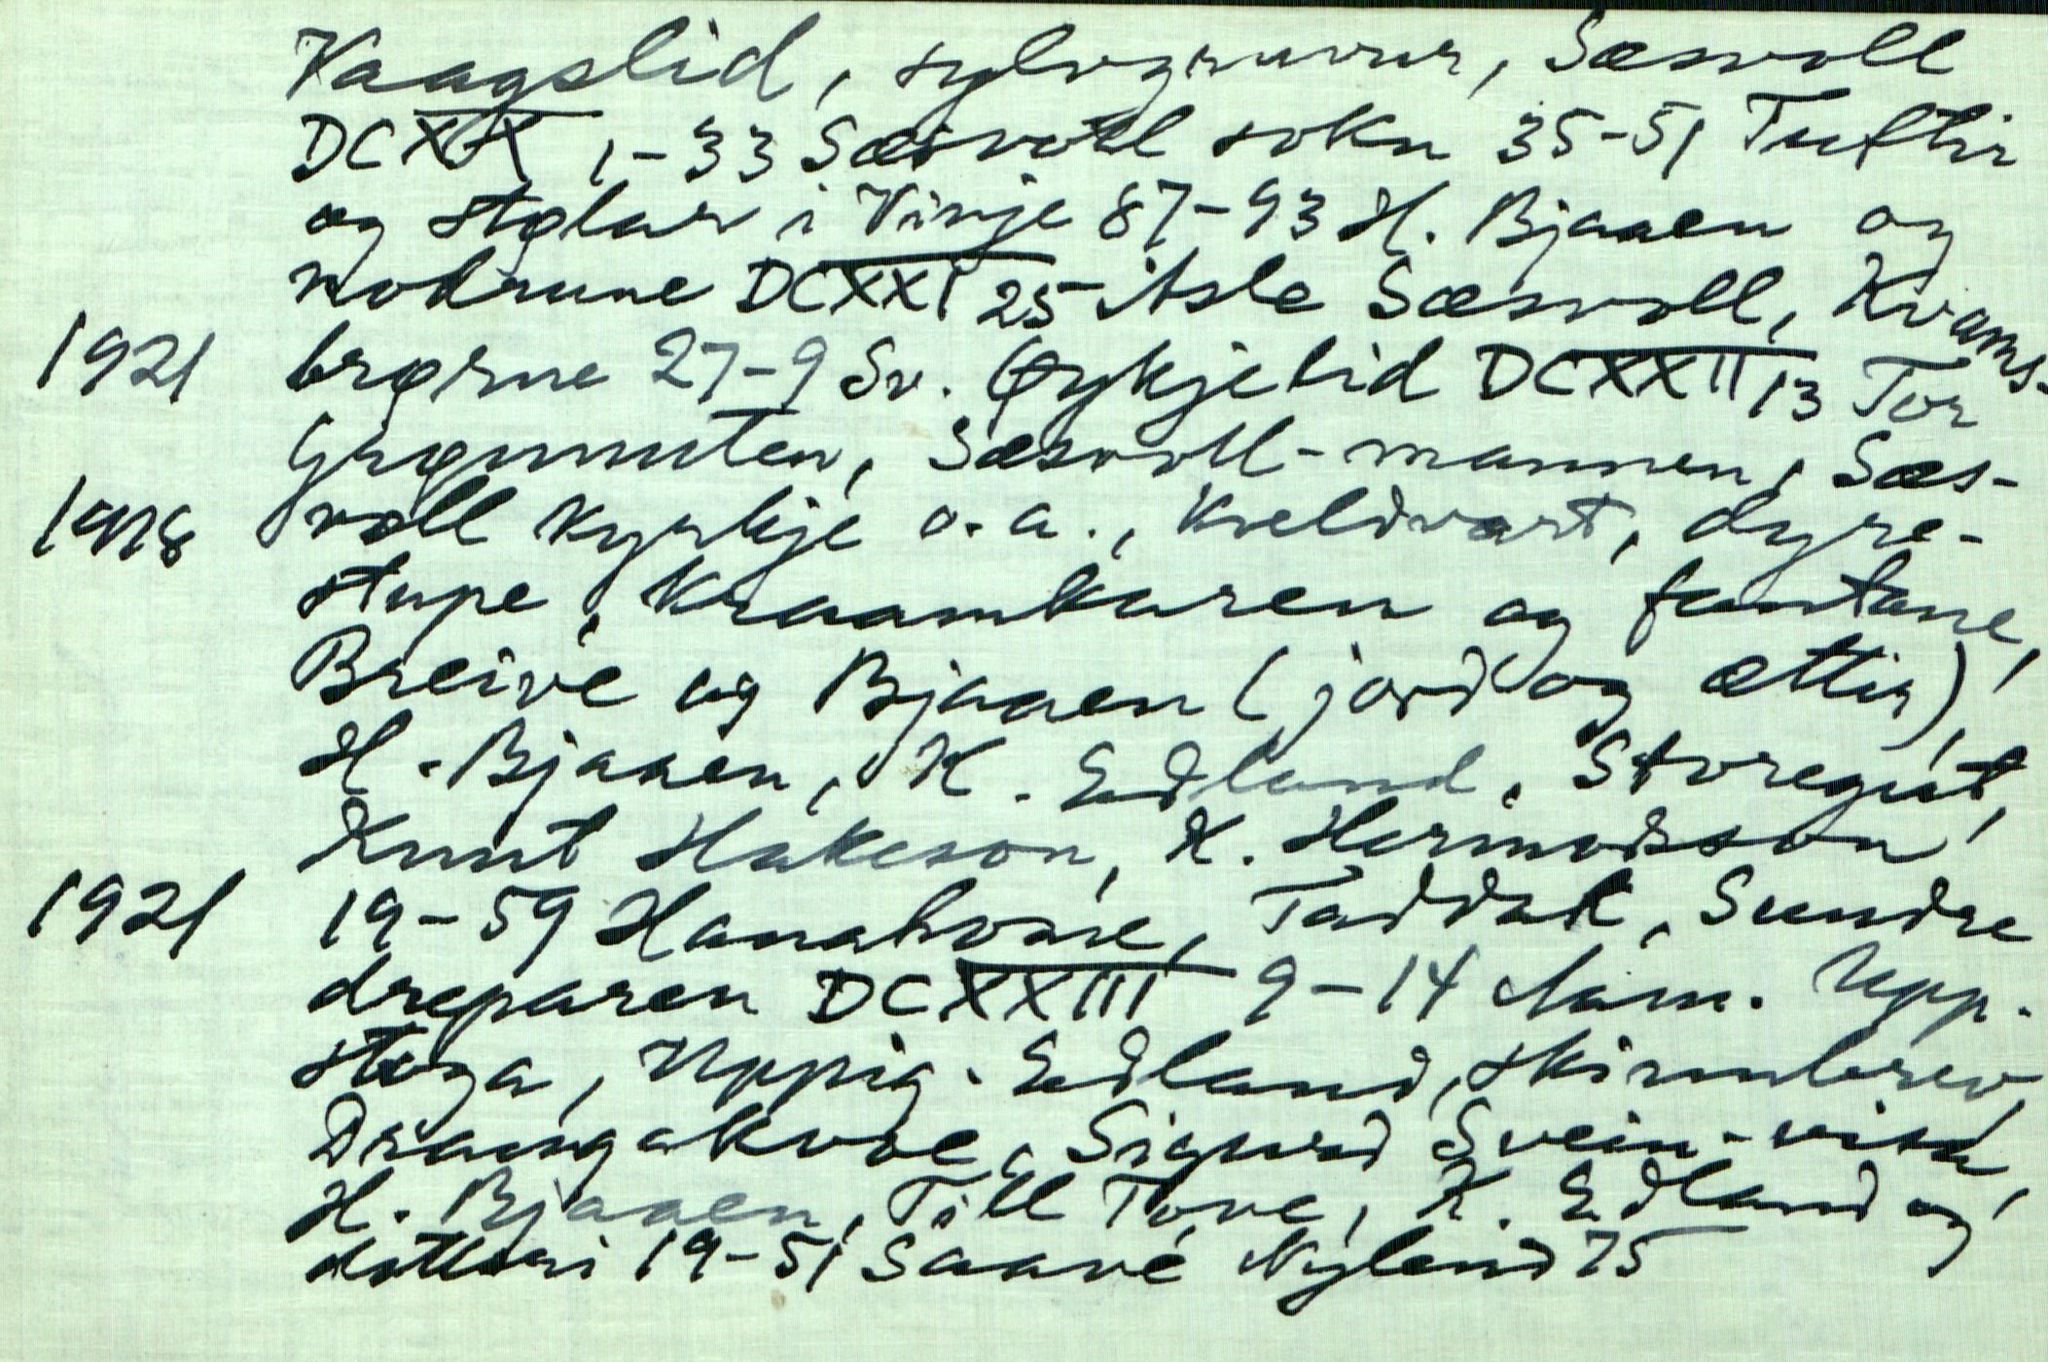 Vaagslid, sylvgruvur, Sæsvoll
DCXX 1-33 Sæsvoll sokn 35-51 Tuftir
og stølar i Vinje 87-93 H. Bjaaen og
nokrune DCXXI 25 Asle Sæsvoll, Kvams-
1921 brørne 27-9 Sv. Øykjelid DCXXII 13 Tor
Grønnuten, Sæsvoll-mannen, Sæs-
1918 voll kyrkje o.a., Kveldvart, dyre-
stupe, Kraamkaren og fantane,
Breive og Bjaaen (jord og ættir),
H. Bjaaen, K. Edland, Storegut,
Knut Hakeson, K. Hermodson
1921 19-59 Hanahovae, Taddak, Sundre
dreparen DCXXIII 9-14 Aam. Upp.
stoga, Uppig. Edland, skinnbrev,
Draugakvæe, Sigurd Svein-visa,
H. Bjaaen, Till Tove, K. Edland og
dotteri 19-51 Saave Nyland 75